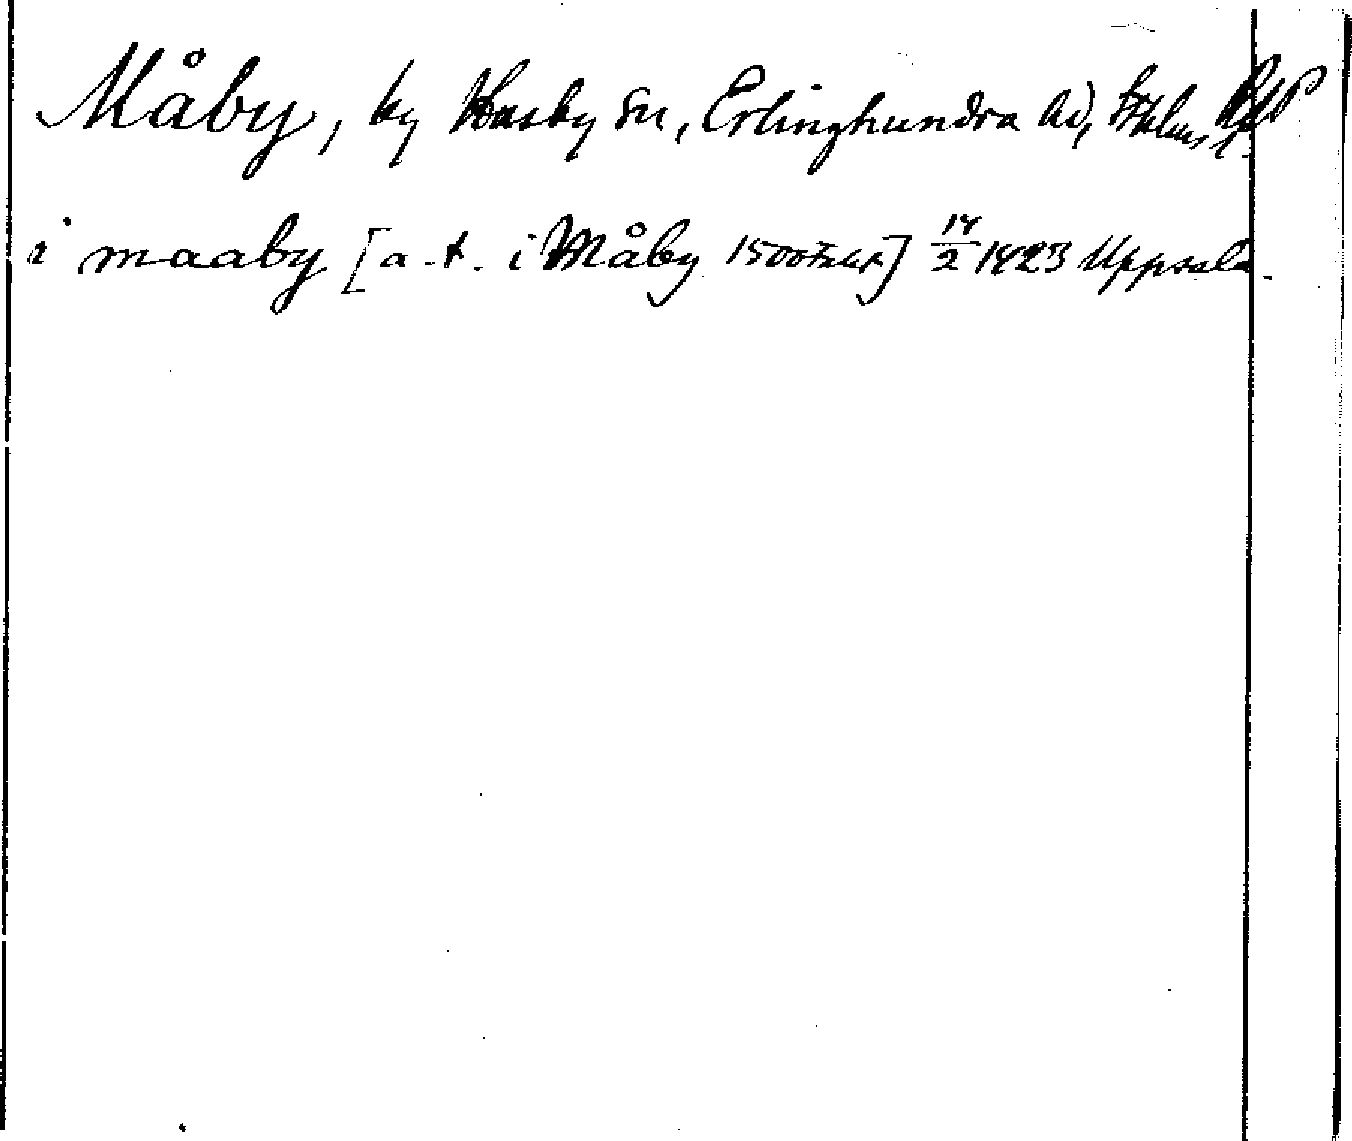 Måby, by Husby sn, Erlinghundra hd, Sthlms l. RAP
i maaby [a-t. i Måby 1500talet] 14/2 1423 Uppsala.